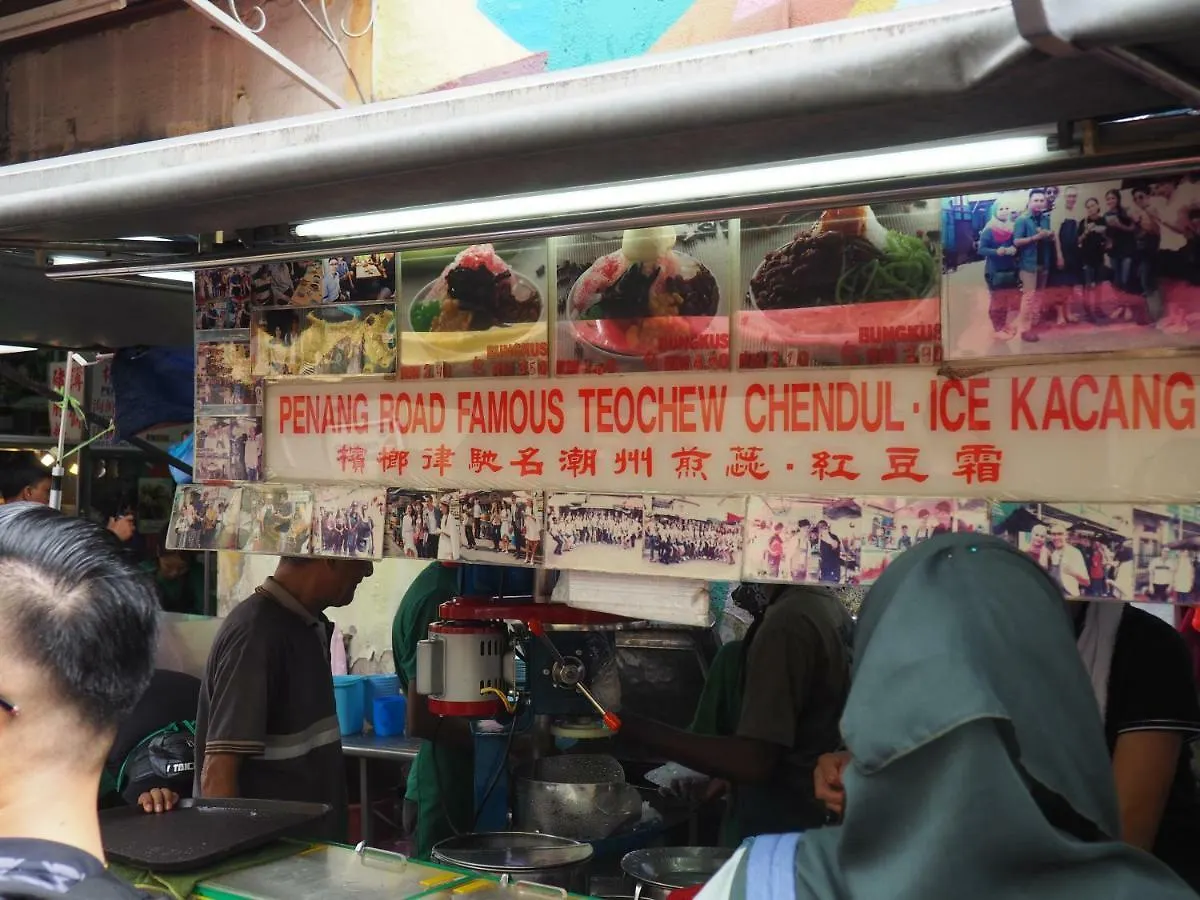 BUNGKUS
BUNGKUS
BUNGKUS
PENANG ROAD FAMOUS TEOCHEW CHENDUL · ICE KACANG
檳榔律馳名潮州煎蕊 · 紅豆霜